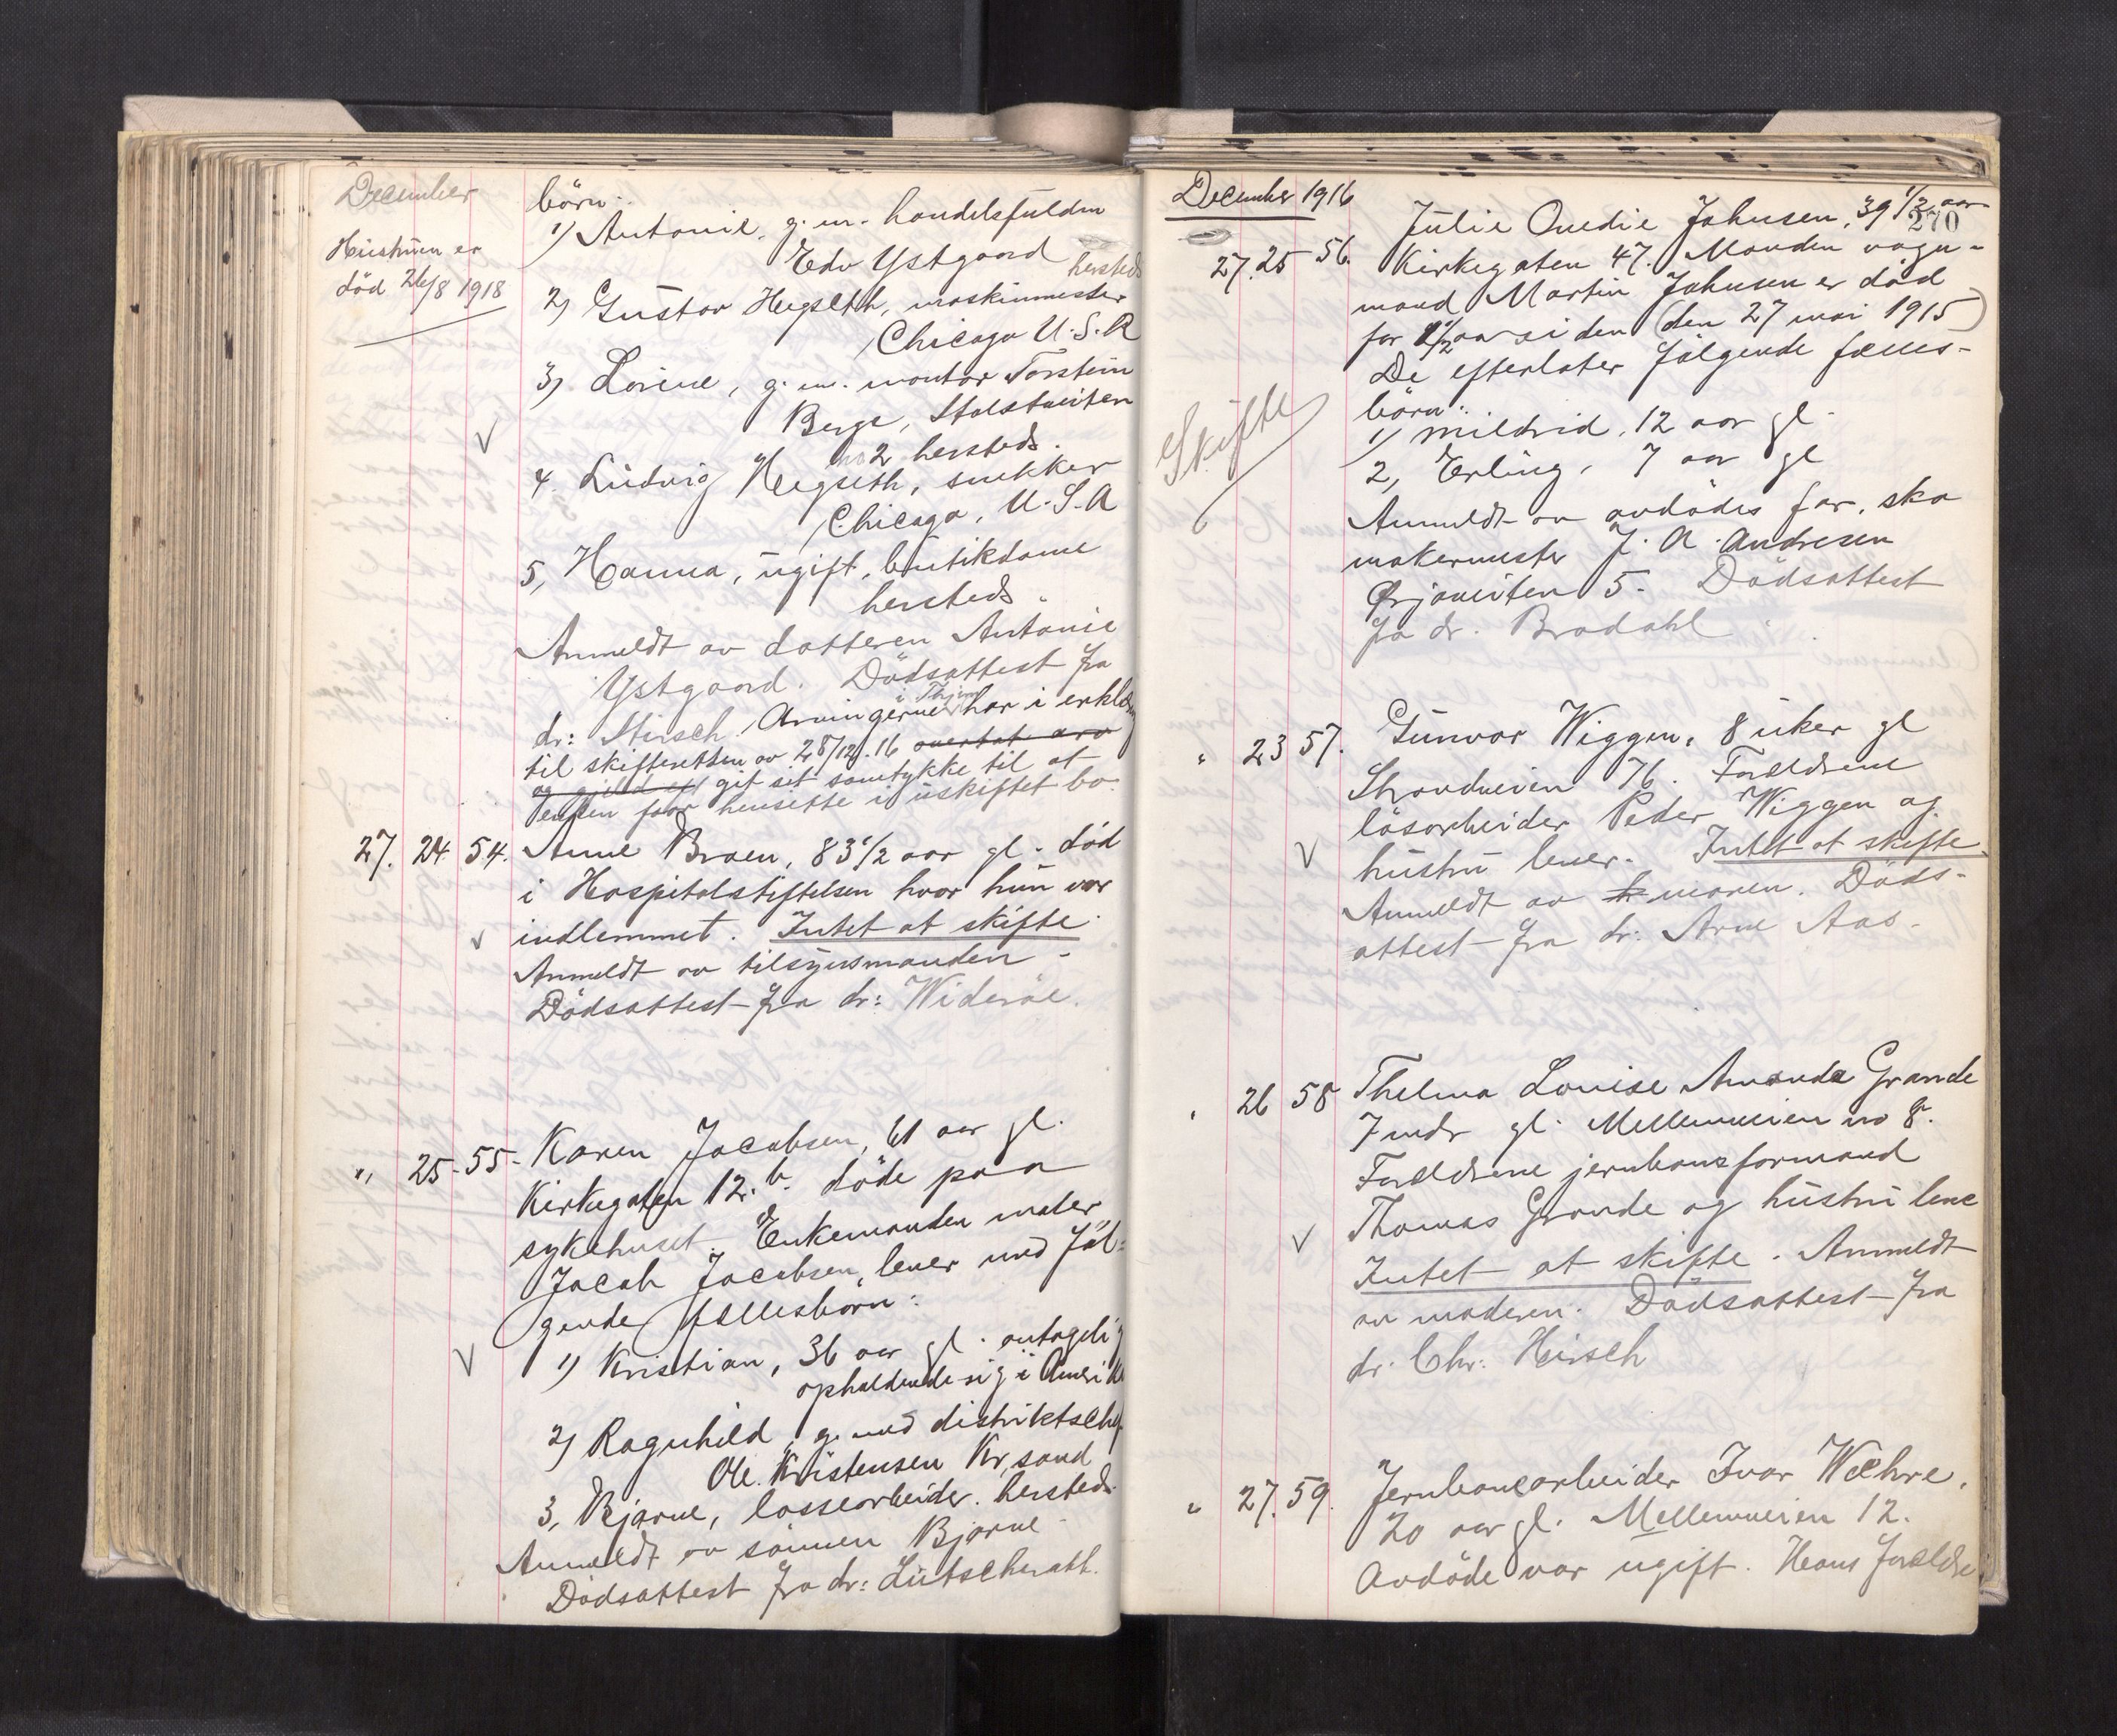 December
Hustruen er
död 26/8 1918
börn:
1) Antonie, g. m. handelsfuldm
Edv Ystgaard hersteds
2) Gustav Hegseth, maskinmester
Chicago U.S.A
3) Lorine, g. m. montør Torstein
Berge, Stalstuviten
no 2 hersteds.
4. Ludvig Hegseth, snekker
Chicago, U.S.A
5, Hanna, ugift, butikdame
hersteds.
Anmeldt av datteren Antonie
Ystgaard. Dödsattest fra
dr: Hirsch. Arvingerne i Thjem har i erklær
til skifteretten av 28/12.16 overtat arv
og gjeld eft git sit samtykke til at
enken faar hensitte i uskiftet bo.
27. 24 54. Anne Braen, 83 1/2 aar gl. död
i Hospitalstiftelsen hvor hun var
indlemmet. Intet at skifte.
Anmeldt av tilsynsmanden -
Dödsattest fra dr: Wideröe.
" 25. 55. Karen Jacobsen, 61 aar gl.
Kirkegaten 12. b. döde paa
sykehuset. Enkemanden maler
Jacob Jacobsen, lever med föl=
gende fællesbörn:
1) Kristian, 36 aar gl. antagelig
opholdende sig i Amerika
2) Ragnhild, g. med distriktschef
Ole Kristensen Kr,sand
3, Bjarne, lossearbeider. hersteds.
Anmeldt av sönnen Bjarne
Dödsattest fra dr: Lütscherath.
December 1916
270
27. 25 56. Julie Ovedie Johnsen, 39 1/2 aar
Kirkegaten 47. Manden vogn-
mand Martin Johnsen er död
for 1 1/2 aar siden (den 27 mai 1915)
De efterlater fölgende fælles-
börn:
Skifte
1) Mildrid, 12 aar gl.
2, Erling, 7 aar gl
Anmeldt av avdödes far, sko
makermester J. A. Andresen
Ørjaveiten 5. Dödsattest
fra dr. Bradahl.
" 23 57. Gunvor Wiggen, 8 uker gl
Strandveien 76. Forældrene
lösarbeider Peder Wiggen og
hustru lever. Intet at skifte.
Anmeldt av moren. Döds-
attest fra dr: Arne Aas.
" 26 58 Thelma Louise Amanda Grande
7 mdr gl. Mellemveien no 8.
Forældrene jernbaneformand
Thomas Grande og hustru leve
Intet at skifte. Anmeldt
av moderen. Dödsattest fra
dr. Chr: Hirsch
" 27. 59. Jernbanearbeider Ivar Wæhre,
20 aar gl. Mellemveien 12.
Avdöde var ugift. Hans forældre